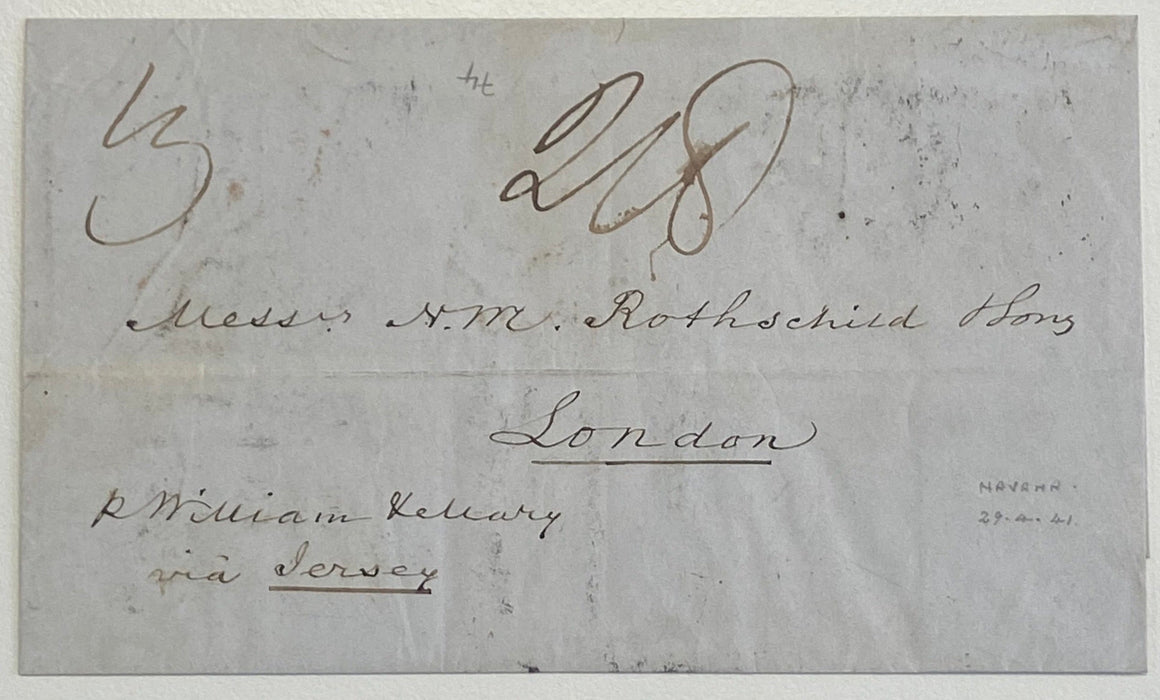 74
2/8
Messrs N. M. Rothschild & Sons
London
p William & Mary
via Jersey
HAVANA.
29.4.41.